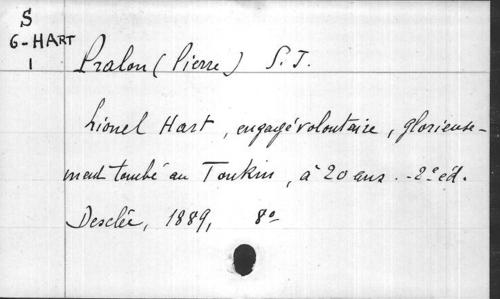 S
6-HART
1
Pralon (Pierre) S. J.
Lionel Hart, engagé volontaire, glorieuse-
ment tombé au Tonkin, à 20 ans. - 2e éd.
Desclée, 1889, 8o